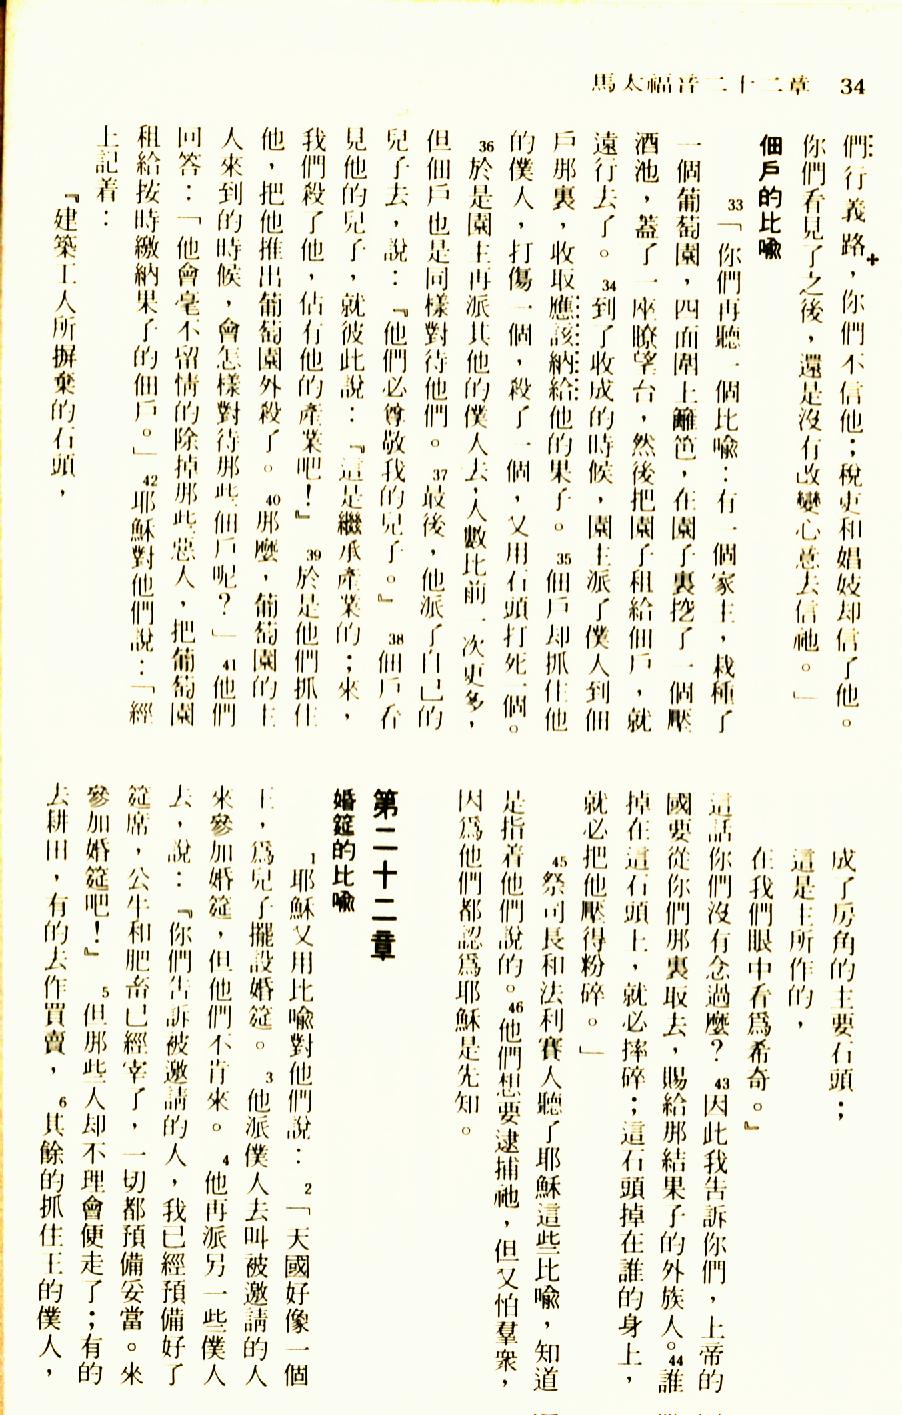 馬太福音二十二章 34
們行義路，你們不信他；稅吏和娼妓却信了他。
你們看見了之後，還是沒有改變心意去信祂。」
佃戶的比喩
33「你們再聽一個比喩：有一個家主，栽種了
一個葡萄園，四面圍上籬笆，在園子裏挖了一個壓
酒池，蓋了一座瞭望台，然後把園子租給佃戶，就
遠行去了。34到了收成的時候，園主派了僕人到佃
戶那裏，收取應該納給他的果子。35佃戶却抓住他
的僕人，打傷一個，殺了一個，又用石頭打死一個。
36於是園主再派其他的僕人去，人數比前一次更多，
但佃戶也是同樣對待他們。37最後，他派了自己的
兒子去，說：『他們必尊敬我的兒子。』38佃戶看
見他的兒子，就彼此說：『這是繼承產業的；來，
我們殺了他，佔有他的產業吧！』39於是他們抓住
他，把他推出葡萄園外殺了。40那麼，葡萄園的主
人來到的時候，會怎樣對待那些佃戶呢？」41他們
回答：「他會毫不留情的除掉那些惡人，把葡萄園
租給按時繳納果子的佃戶。」42耶穌對他們說：「經
上記着：
『建築工人所摒棄的石頭，
成了房角的主要石頭；
這是主所作的，
在我們眼中看爲希奇。』
這話你們沒有念過麼？43因此我告訴你們，上帝的
國要從你們那裏取去，賜給那結果子的外族人。44誰
掉在這石頭上，就必摔碎；這石頭掉在誰的身上，
就必把他壓得粉碎。」
45祭司長和法利賽人聽了耶穌這些比喩，知道
是指着他們說的。46他們想要逮捕祂，但又怕羣衆，
因爲他們都認爲耶穌是先知。
第二十二章
婚筵的比喩
1耶穌又用比喩對他們說：2「天國好像一個
王，爲兒子擺設婚筵。3他派僕人去叫被邀請的人
來參加婚筵，但他們不肯來。4他再派另一些僕人
去，說：『你們告訴被邀請的人，我已經預備好了
筵席，公牛和肥畜已經宰了，一切都預備妥當。來
參加婚筵吧！』5但那些人却不理會便走了；有的
去耕田，有的去作買賣，6其餘的抓住王的僕人，